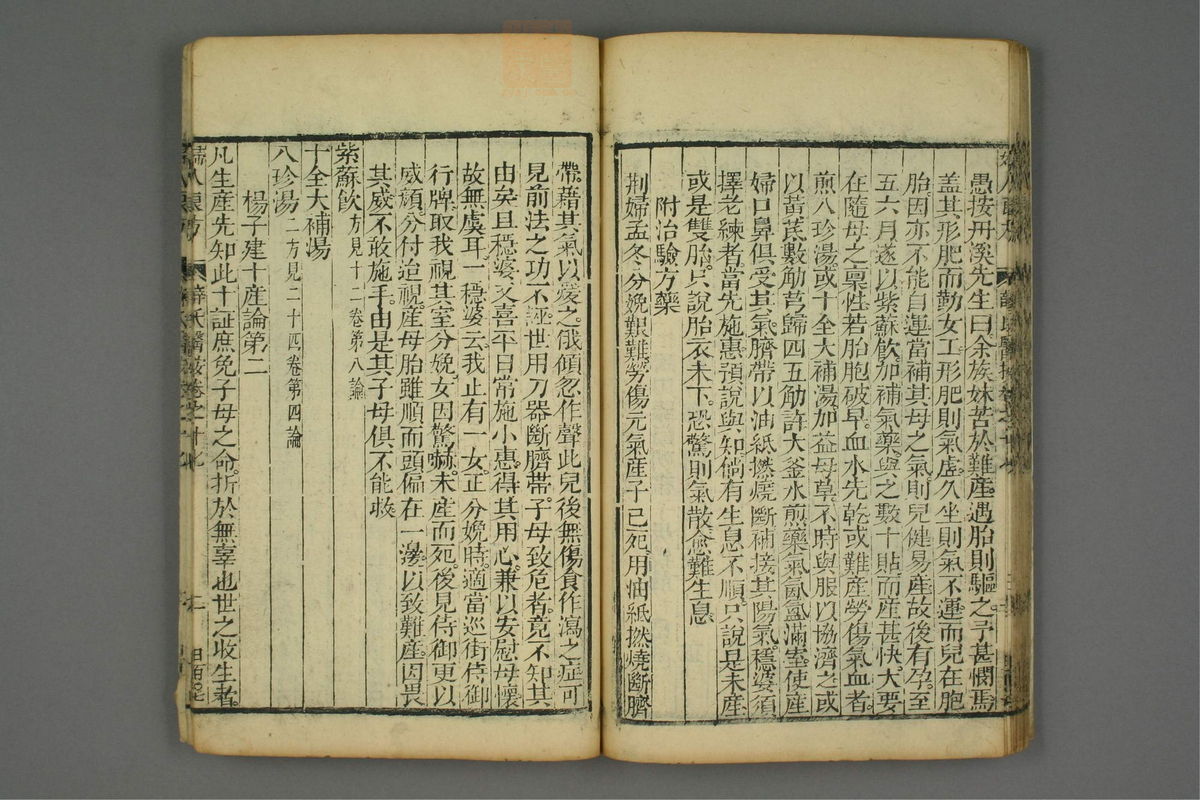 愚按丹溪先生曰余族妹苦於難産遇胎則驅之予甚憫焉
蓋其形肥而勤女工形肥則氣虚久坐則氣不運而兒在胞
胎因亦不能自運當補其母之氣則兒健易産故後有孕至
五六月遂以紫蘇飲加補氣藥與之數十貼而産甚快大要
在隨母之禀性若胎胞破早血水先乾或難産勞傷氣血者
煎八珍湯或十全大補湯加益母草不時與服以協濟之或
以黃芪數觔芎歸四五觔許大釜水煎藥氣氤氳滿室使産
婦口鼻俱受其氣臍帶以油紙撚燒斷補接其陽氣穩婆須
擇老練者當先施惠預說與知倘有生息不順只說是未産
或是雙胎只說胎衣未下恐驚則氣散愈難生息
附治驗方藥
荆婦孟冬分娩艱難勞傷元氣産子已死用油紙撚燒斷臍
帶藉其氣以煖之俄傾忽作聲此兒後無傷食作瀉之症可
見前法之功不誣世用刀器斷臍帶子母致危者竟不知其
由矣且穩婆又喜平日常施小惠得其用心兼以安慰母懷
故無虞耳一穩婆云我止有一女正分娩時適當巡街侍御
行牌取我視其室分娩女因驚嚇未産而死後見侍御更以
威顏分付追視産母胎雖順而頭偏在一邊以致難産因畏
其威不敢施手由是其子母俱不能救
紫蘇飲方見十二卷第八論
十全大補湯
八珍湯二方見二十四卷第四論
楊子建十産論第二
凡生産先知此十証庶免子母之命折於無辜也世之收生者
婦人良方 薛氏醫按卷之十七